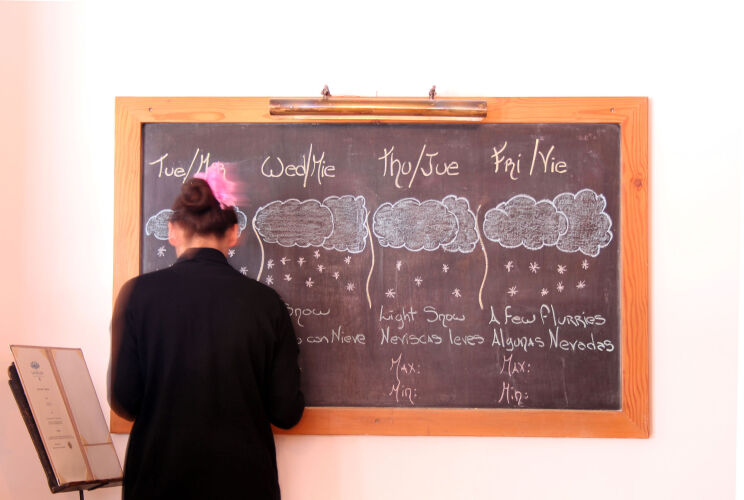 Tue/Mar
Wed/Mie
Thu/Jue
Fri/Vie
Snow
con Nieve
Light Snow
Neviscas leves
Max:
Min:
A Few Flurries
Algunas Nevadas
Max:
Min: